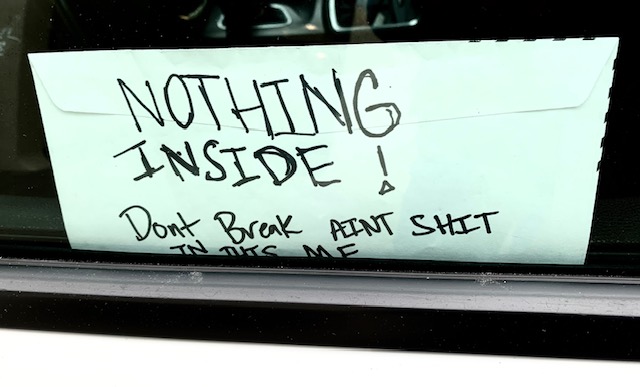 NOTHING
INSIDE!
Dont Break AINT SHIT
IN THIS